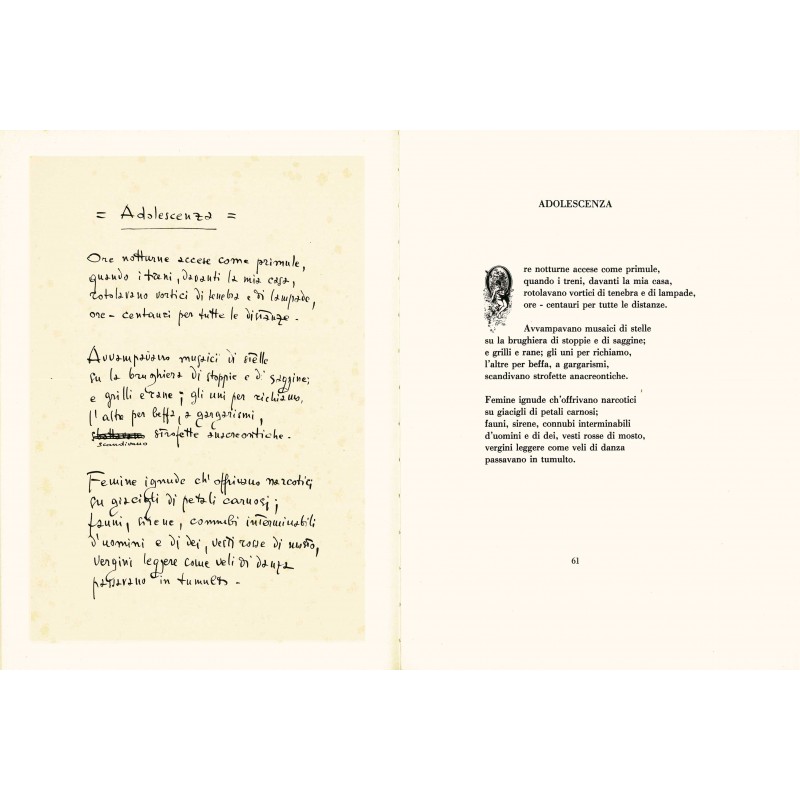 = Adolescenza =
Ore notturne accese come primule,
quando i treni, davanti la mia casa,
rotolavano vortici di tenebra e di lampade,
ore - centauri per tutte le distanze.
Avvampavano musaici di stelle
su la brughiera di stoppie e di saggine;
e grilli e rane; gli uni per richiamo,
l'altre per beffa, a gargarismi,
strofette anacreontiche.
scandivano
Femine ignude ch'offrivano narcotici
su giacigli di petali carnosi;
fauni, sirene, connubi interminabili
d'uomini e di dei, vesti rosse di mosto,
vergini leggere come veli di danza
passavano in tumulto -
ADOLESCENZA
Ore notturne accese come primule,
quando i treni, davanti la mia casa,
rotolavano vortici di tenebra e di lampade,
ore - centauri per tutte le distanze.
Avvampavano musaici di stelle
su la brughiera di stoppie e di saggine;
e grilli e rane; gli uni per richiamo,
l'altre per beffa, a gargarismi,
scandivano strofette anacreontiche.
Femine ignude ch'offrivano narcotici
su giacigli di petali carnosi;
fauni, sirene, connubi interminabili
d'uomini e di dei, vesti rosse di mosto,
vergini leggere come veli di danza
passavano in tumulto.
61